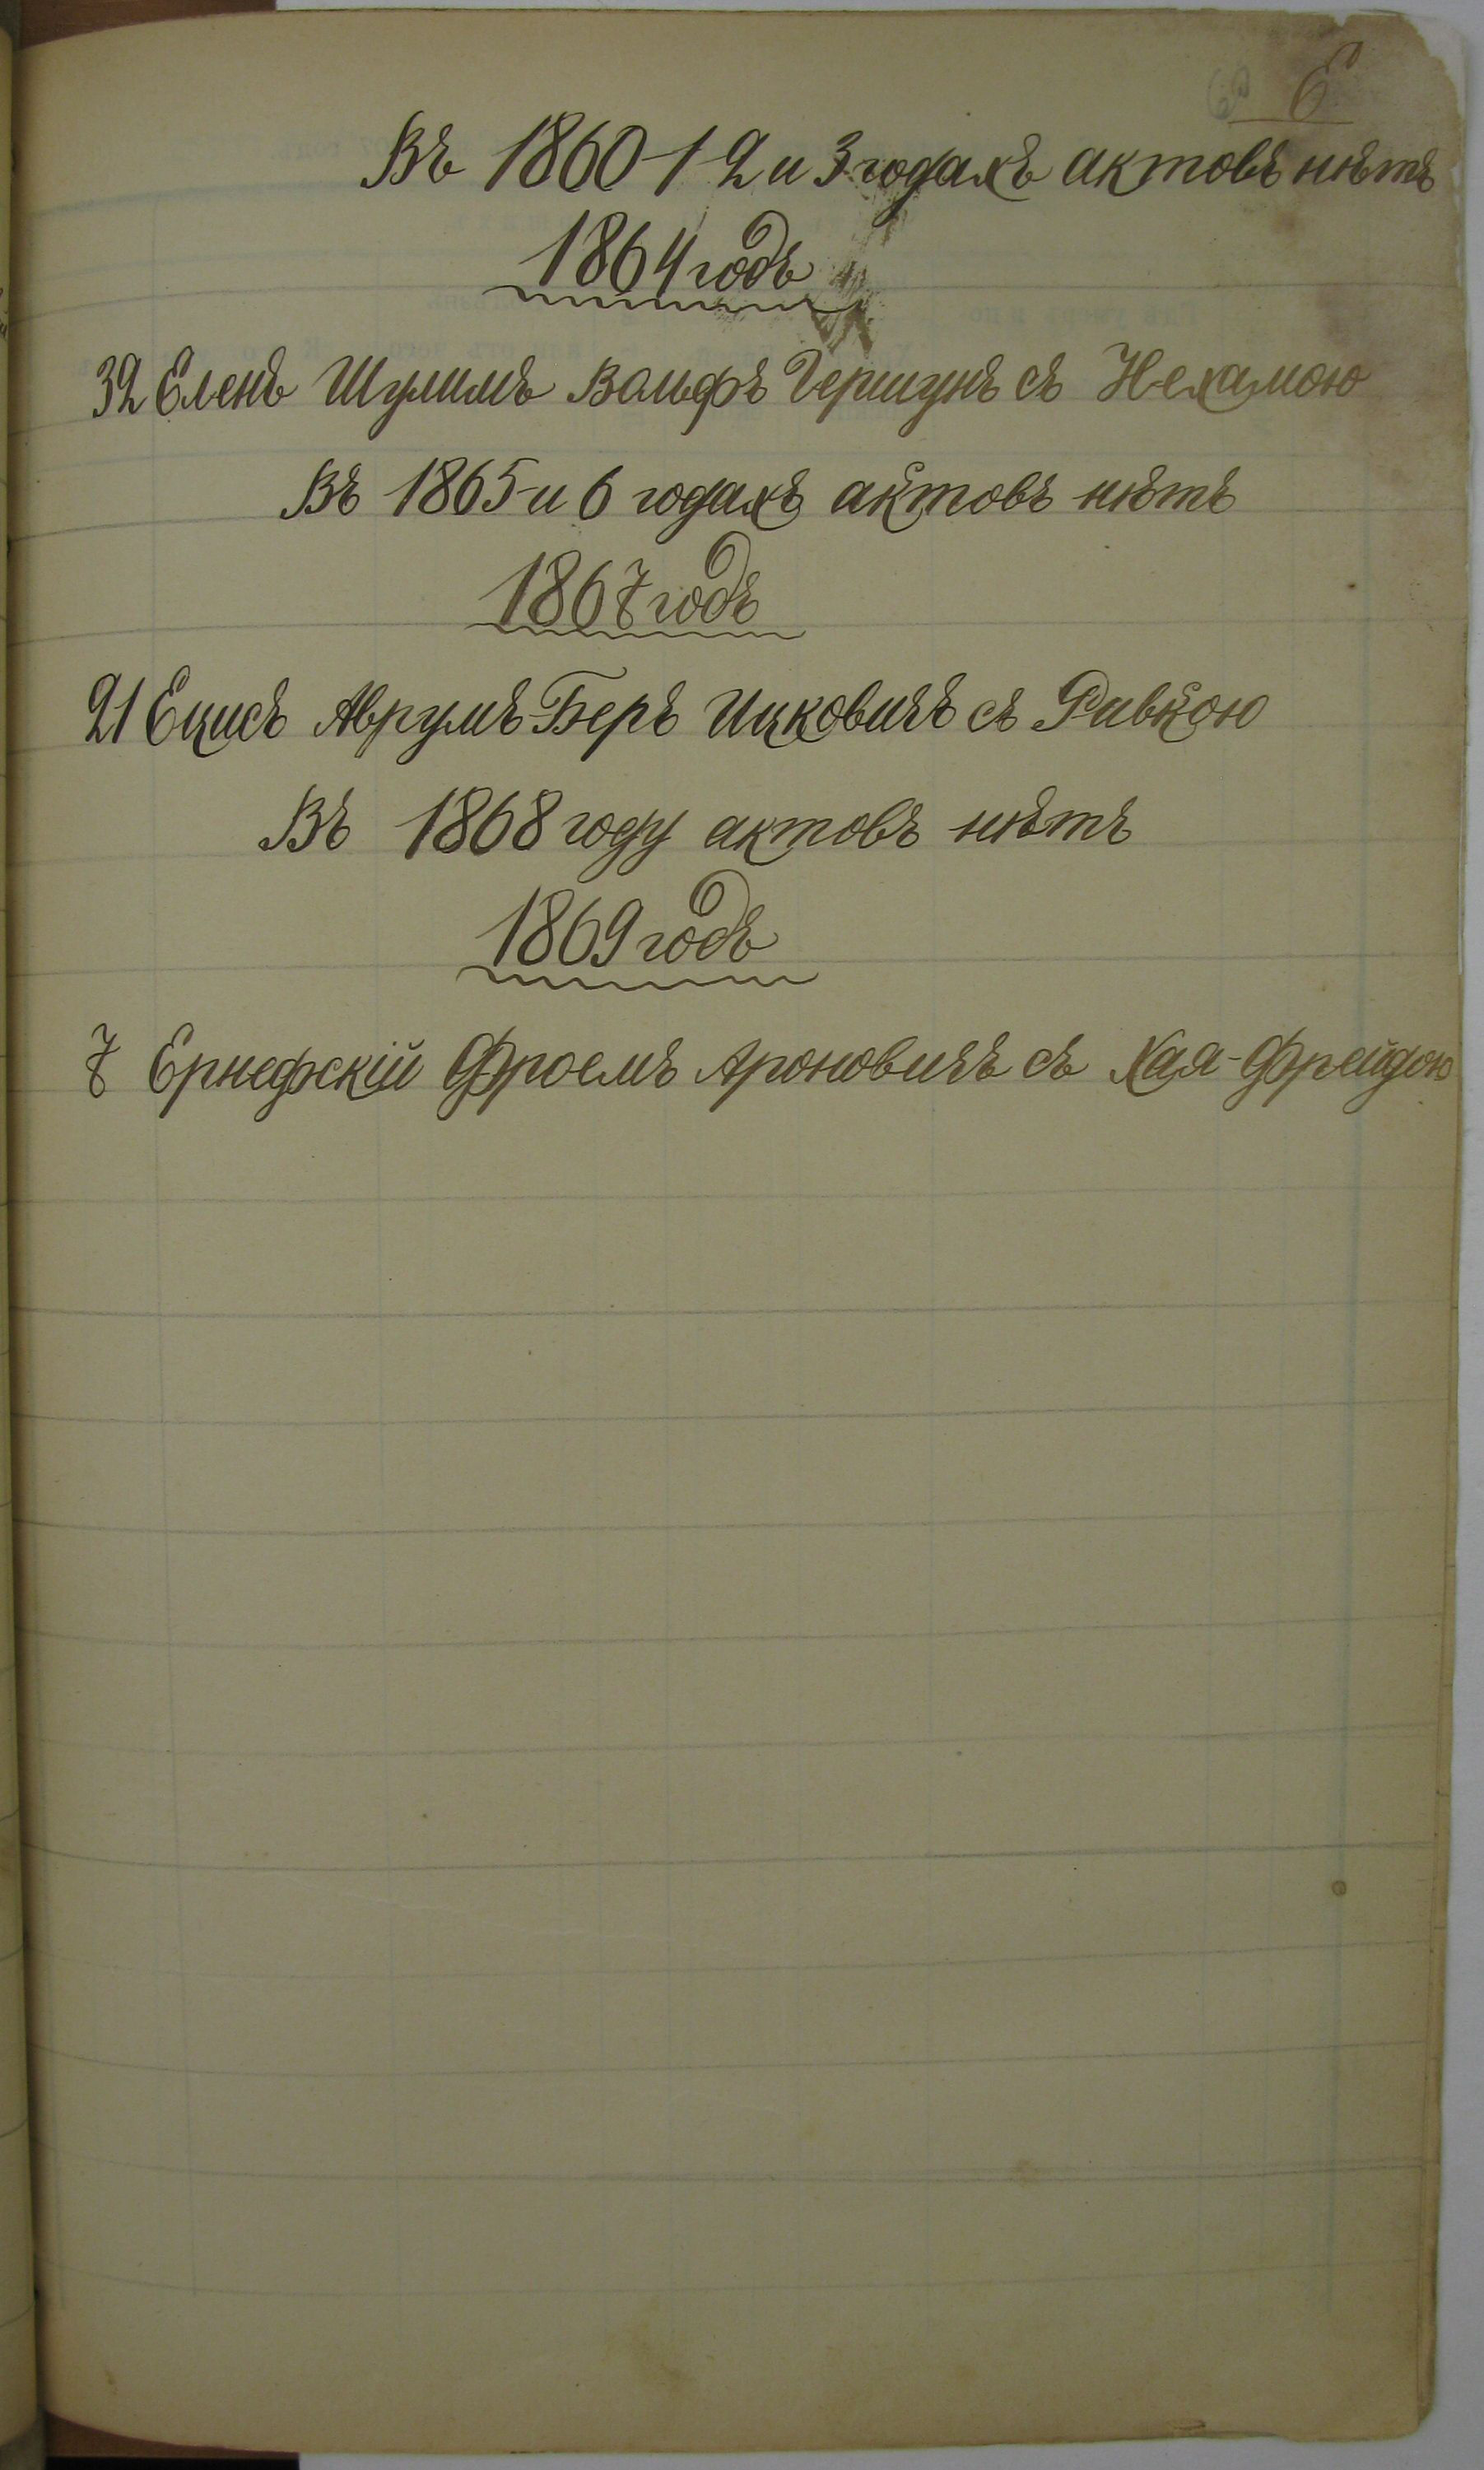 Е
Въ 1860-1-2 и 3 годахъ актовъ нѣтъ
1864 годъ
32 Еленъ Шулимъ Вольфъ Гершунъ съ Нехамою
Въ 1865 и 6 годахъ актовъ нѣтъ
1867 годъ
21 Ецисъ Аврумъ-Беръ Ицковичъ съ Ривкою
Въ 1868 году актовъ нѣтъ
1869 годъ
7 Ернефскій Фроемъ Ароновичъ съ Хая-Фрейдою